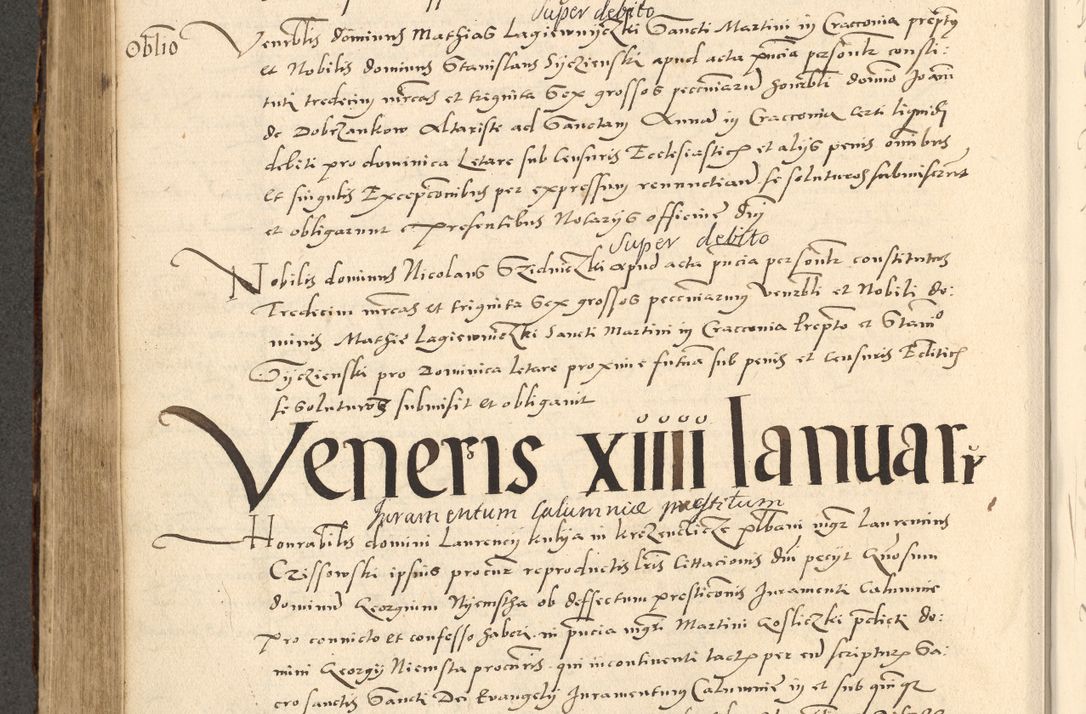 super debito
Oblio
Venerblis dominus Mathias Lagiewniczki Sancti Martini in Cracconia prepts
et Nobilis dominus Stanislaus Syczienski apud acta pncia prsontr consti:
tuti tredecim mrcas et triginta sex grossos pecuniarum honrbli domino Joann
de Dobczankow Altariste ad Sanctam Annam in Cracconia certi liquidi
debiti pro dominica Letare sub Censuris Ecclesiasticis et aliis penis omibus
et singulis Excepconibus per expressum renunctiand se soluturos submiserunt
et obligarunt presentibus Notariis officine dni
super debito
Nobilis dominus Nicolaus Szedniczki apud acta pncia personlr constitutus
Tredecim mrcas et triginta sex grossos pecuniarum venrbli et Nobili do:
minis Mathie Lagiewniczki Sancti Martini in Cracconia Prepto et Stanio
Syczienski pro Dominica letare proxime futura sub penis et censuris Ecliticis
se soluturos submisit et obligavit
Veneris xiiii Ianuarii
Juramentum Calumniae praestitum
Honrabilis domini Laurencii kulija in krzezenczicze plbani mgr Laurentius
Czissowski ipsius procurr reproductis lris Cittacionis dni peciit Quosum
dominum Georgium Nyemstha ob deffectum presticonis Juramenti Calumnie
pro convicto et confesso haberi in pncia mgri Martini Gosliczki pclicti do:
mini Georgii Niemsta procuris qui incontinenti tactis per eum scripturis Sa:
cro sanctis Sancti Dei Evangelii Juramentum Calumnie in et sub